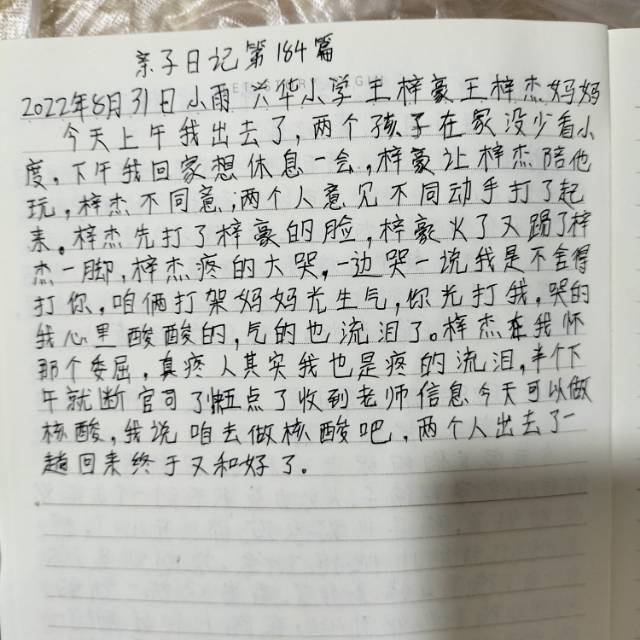 亲子日记第184篇
2022年8月31日小雨 兴华小学王梓豪王梓杰妈妈
今天上午我出去了，两个孩子在家没少看小
度，下午我回家想休息一会，梓豪让梓杰陪他
玩，梓杰不同意，两个人意见不同动手打了起
来。梓杰先打了梓豪的脸，梓豪火了又踢了梓
杰一脚，梓杰疼的大哭，一边哭一说我是不舍得
打你，咱俩打架妈妈光生气，你光打我，哭的
我心里酸酸的，气的也流泪了。梓杰在我怀
那个委屈，真疼人其实我也是疼的流泪，半个下
午就断官司了快五点了收到老师信息今天可以做
核酸，我说咱去做核酸吧，两个人出去了一
趟回来终于又和好了。